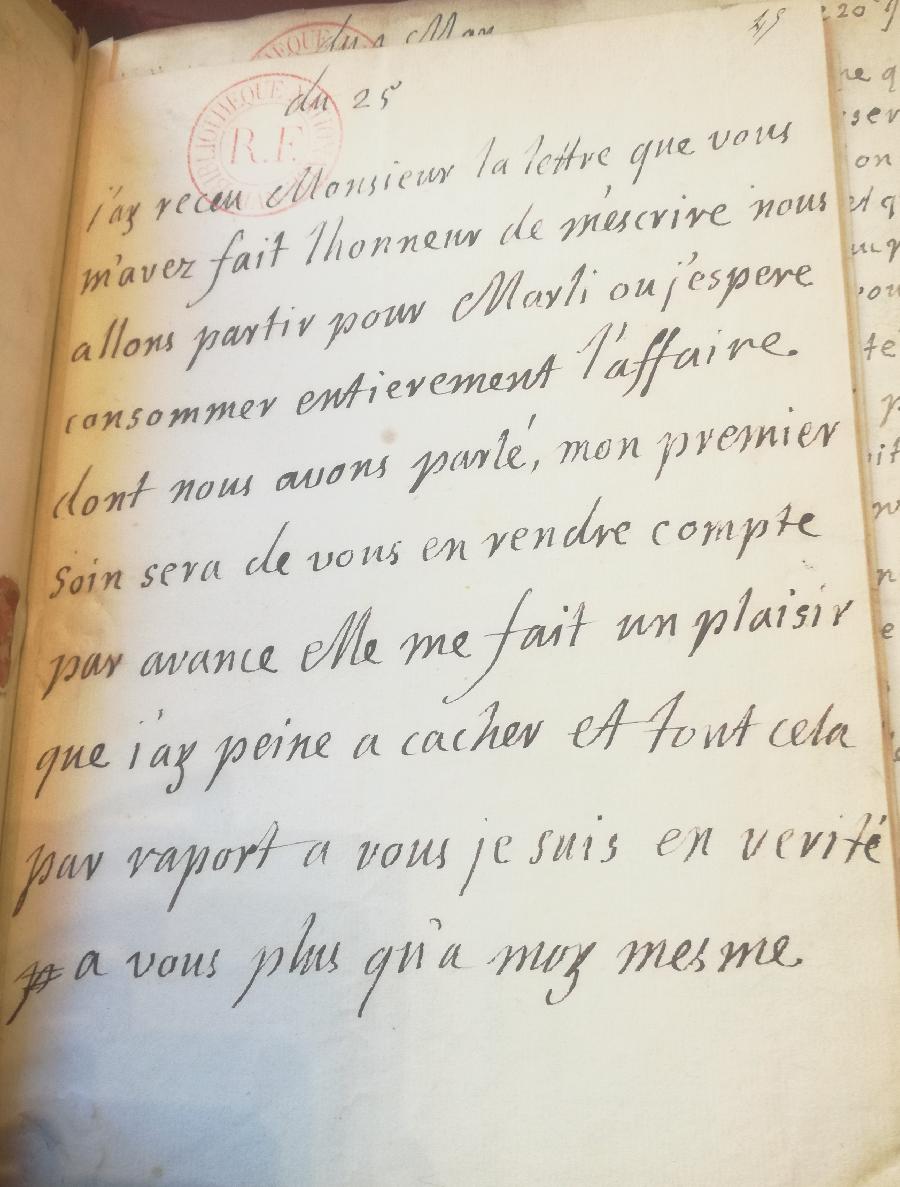 49
du 25
BIBLIOTHEQUE
R.F.
j'ay receu Monsieur la lettre que vous
m'avez fait lhonneur de m'escrire nous
allons partir pour Marli ou j'espere
consommer entierement l'affaire
dont nous avons parlé, mon premier
soin sera de vous en rendre compte
par avance elle me fait un plaisir
que j'ay peine a cacher et tout cela
par raport a vous je suis en verité
a vous plus qu'a moy mesme